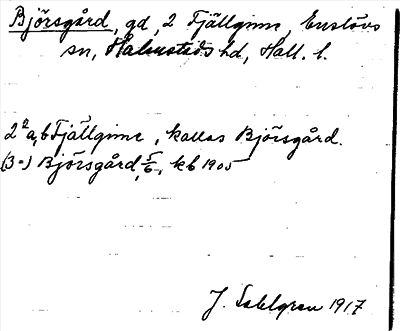 Björsgård, gd, 2 Fjällginne, Enslövs
sn, Halmstads hd, Hall. l.
2²a,b Fjällginne, kallas Björsgård.
(30) Björsgård, 5/6, kb 1905
J. Sahlgren 1917